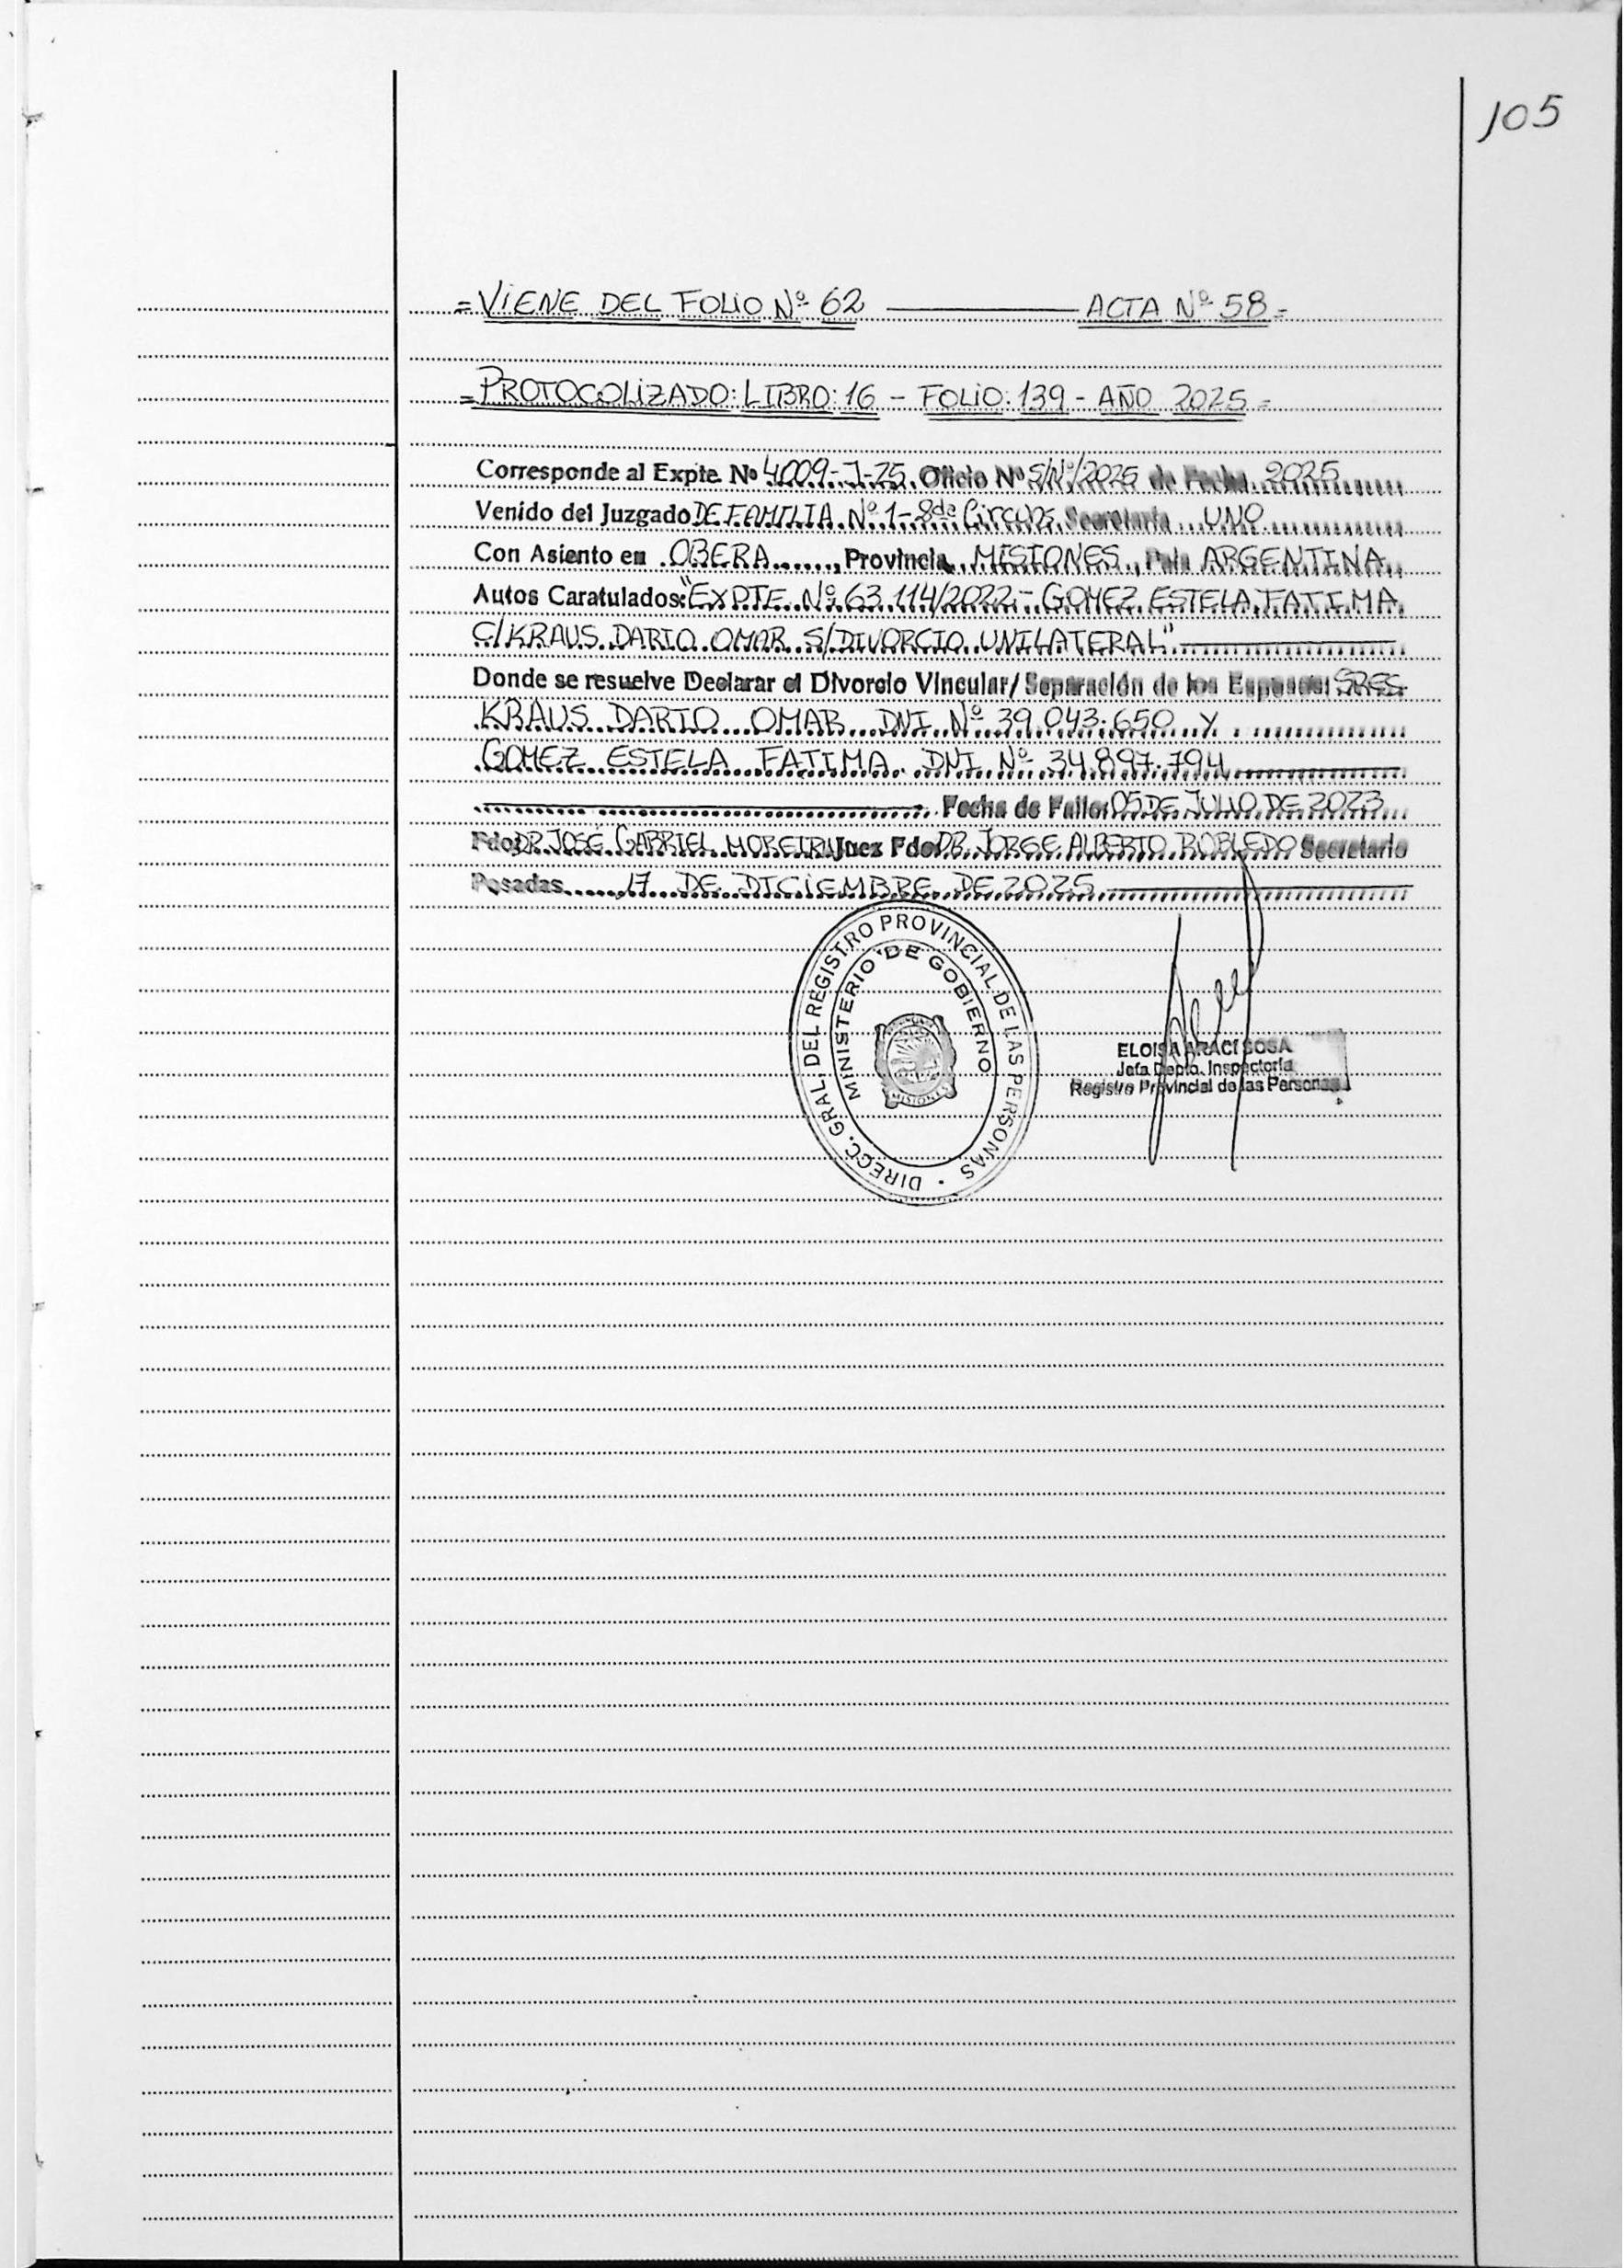 105
= VIENE DEL FOLIO Nº 62 ——— ACTA Nº 58 =
= PROTOCOLIZADO: LIBRO: 16 - FOLIO: 139 - AÑO 2025 =
Corresponde al Expte. Nº 4009-J-25. Oficio Nº S/Nº/2025 de Fecha 2025
Venido del Juzgado DE FAMILIA Nº 1- 8da Circuns. Secretaria UNO
Con Asiento en OBERA, Provincia MISIONES, Pais ARGENTINA
Autos Caratulados: "EXPTE Nº 63.114/2022.- GOMEZ ESTELA FATIMA
C/ KRAUS DARIO OMAR S/ DIVORCIO UNILATERAL"
Donde se resuelve Declarar el Divorcio Vincular/ Separación de los Esposos: SRES.
KRAUS DARIO OMAR DNI Nº 39.043.650 Y
GOMEZ ESTELA FATIMA DNI Nº 34.897.794
Fecha de Fallo: 05 DE JULIO DE 2023
Fdo. DR. JOSÉ GABRIEL MOREIRA Juez Fdo. DR. JORGE ALBERTO ROBLEDO Secretario
Posadas 17 DE DICIEMBRE DE 2025
DIRECC. GRAL. DEL REGISTRO PROVINCIAL DE LAS PERSONAS
MINISTERIO DE GOBIERNO
MISIONES
ELOISA ARACI SOSA
Jefa Depto. Inspectoría
Registro Provincial de las Personas